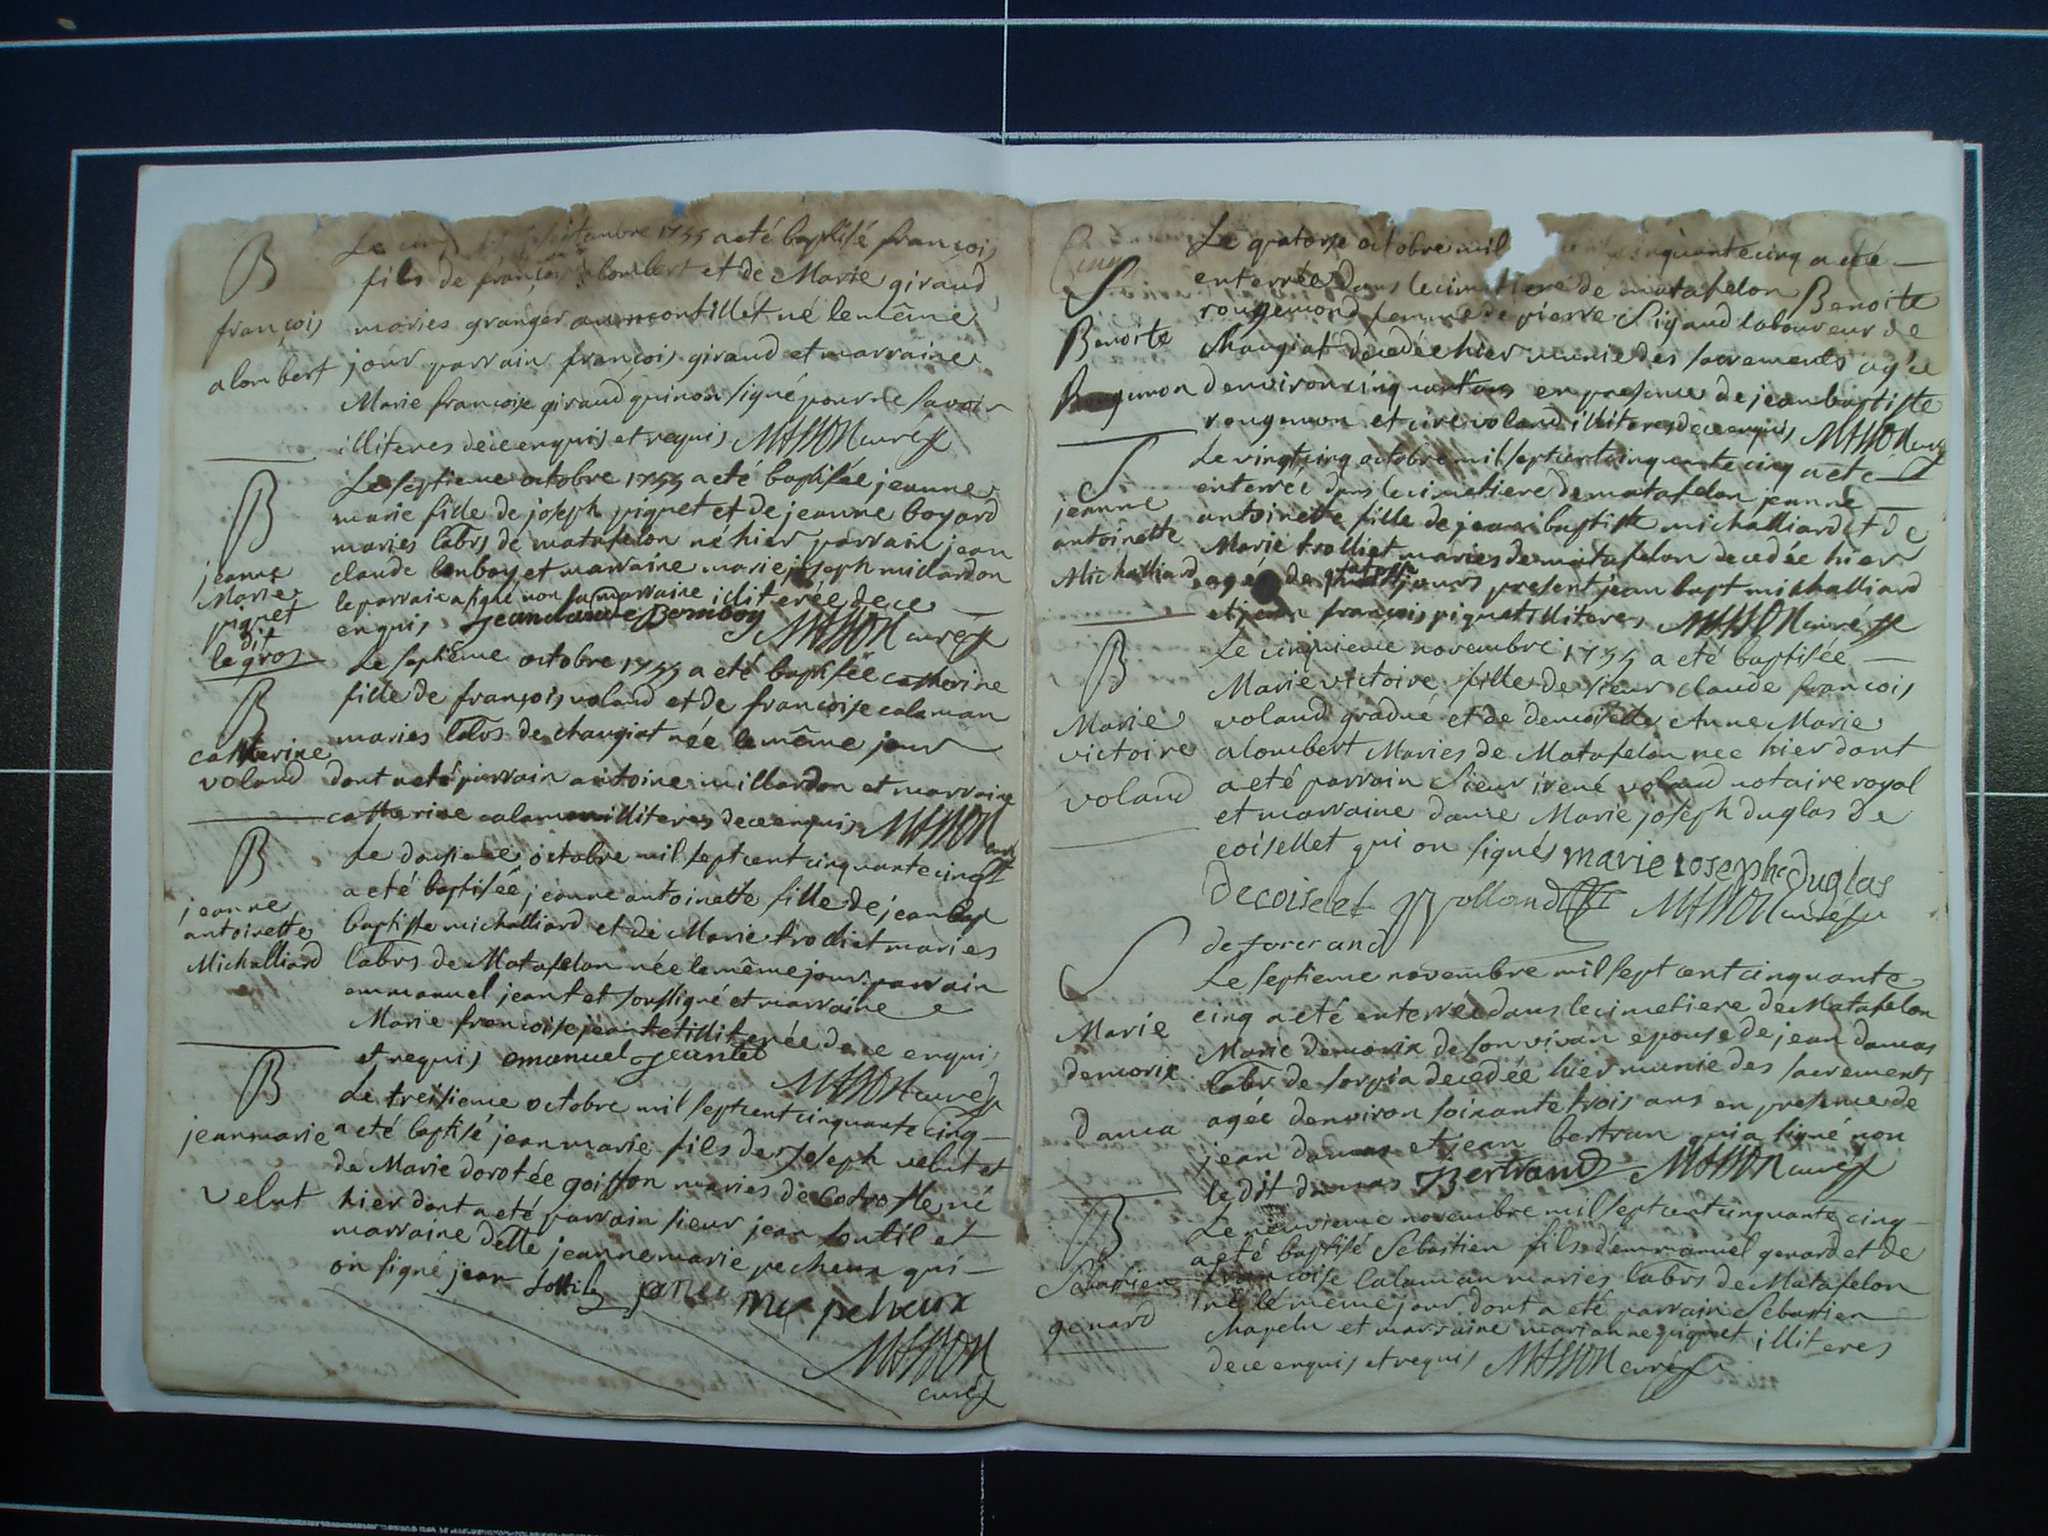 B
françois
alombert
Le septembre 1755 a eté baptisé françois
fils de françois alombert et de Marie giraud
maries granger au montillet né le même
jour parrain françois giraud et marraine
Marie françoise giraud qui non signé pour ne savoir
illiteres de ce enquis et requis MASSON curé
B
jeanne
Marie
piquet
dit
le gros
Le septieme octobre 1755 a eté baptisée jeanne
marie fille de joseph piquet et de jeanne boyard
maries labrs de matafelon né hier parrain jean
claude benboy et marraine marie joseph milardon
le parrain a signé non la marraine illiterée de ce
enquis jean claude Bemboy MASSON curé
B
catherine
voland
Le septême octobre 1755 a eté baptisée catherine
fille de françois voland et de françoise calaman
maries labrs de changiat née le même jour
dont a eté parrain antoine millardon et marraine
catherine calaman illiteres de ce enquis MASSON
curé
B
jeanne
antoinette
Michalliard
Le dousieme octobre mil sept cent cinquante cinq
a eté baptisée jeanne antoinette fille de jean bap
baptiste michalliard et de Marie trolliet maries
labrs de Matafelon née le même jour parrain
emmanuel jeantet soussigné et marraine
Marie françoise jeantet illiterée de ce enquis
et requis emanuel jeantet
MASSON curé
B
jean marie
velut
Le treisieme octobre mil sept cent cinquante cinq
a eté baptisé jean marie fils de joseph velut et
de Marie dorotée goiffon maries de né
hier dont a eté parrain sieur jean soutil et
marraine delle jeanne marie pecheux qui
on signé jean me peheux
MASSON
curé
S
Benoite
Rougemon
Le quatorse octobre mil cinquante cinq a eté
enterrée dans le cimetiere de matafelon Benoite
rougemond femme de pierre Sigaud laboureur de
Changiat decedée hier munie des sacrements agée
denviron cinquant ans en presence de jean baptiste
rougemon et voland illiteres de ce enquis MASSON curé
S
jeanne
antoinette
Michalliard
Le vingt cinq octobre mil sept cent cinquante cinq a eté
enterrée dans le cimetiere de matafelon jeanne
antoinette fille de jean baptiste michalliard et de
Marie trolliet maries de matafelon decedée hier
agée de quatorse jours present jean bapt michalliard
et jean françois piquet illiteres MASSON curé
B
Marie
victoire
voland
Le cinquieme novembre 1755 a eté baptisée
Marie victoire fille de sieur claude françois
voland gradué et de demoiselle Anne Marie
alombert Maries de Matafelon née hier dont
a eté parrain Sieur irené voland notaire royal
et marraine dame Marie joseph duglas de
coisellet qui on signés marie joseph duglas
decoiselet Volland MASSON curé
S
Marie
demorix
dama
Le septieme novembre mil sept cent cinquante
cinq a eté enterrée dans le cimetiere de Matafelon
Marie demorix de son vivan epouse de jean damas
labr de sorpia decedée hier munie des sacrements
agée denviron soixante trois ans en presence de
jean damas et jean bertran qui a signé non
le dit damas Bertrand MASSON curé
B
Sebastien
genard
Le neuvieme novembre mil sept cent cinquante cinq
a eté baptisé Sebastien fils d'emmanuel genard et de
françoise Calaman maries labrs de Matafelon
né le meme jour dont a eté parrain Sebastien
Chapelu et marraine marianne piquet illiteres
de ce enquis et requis MASSON curé